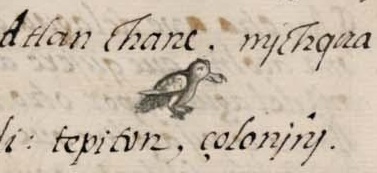 atlan chane. mjchqua
li: tepiton, çolonjnj.